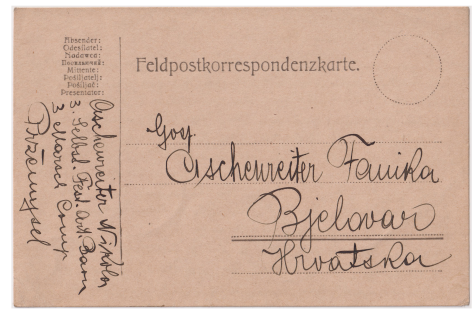 Absender:
Odesílatel:
Nadawca:
Mittente:
Pošiljatelj:
Presentator:
Aschenreiter Nikola
3. Selbst. Fest. Art. Baon
3 Marsch Comp
Przemysel
Feldpostkorrespondenzkarte.
Gog.
Aschenreiter Fanika
Bjelovar
Hrvatska